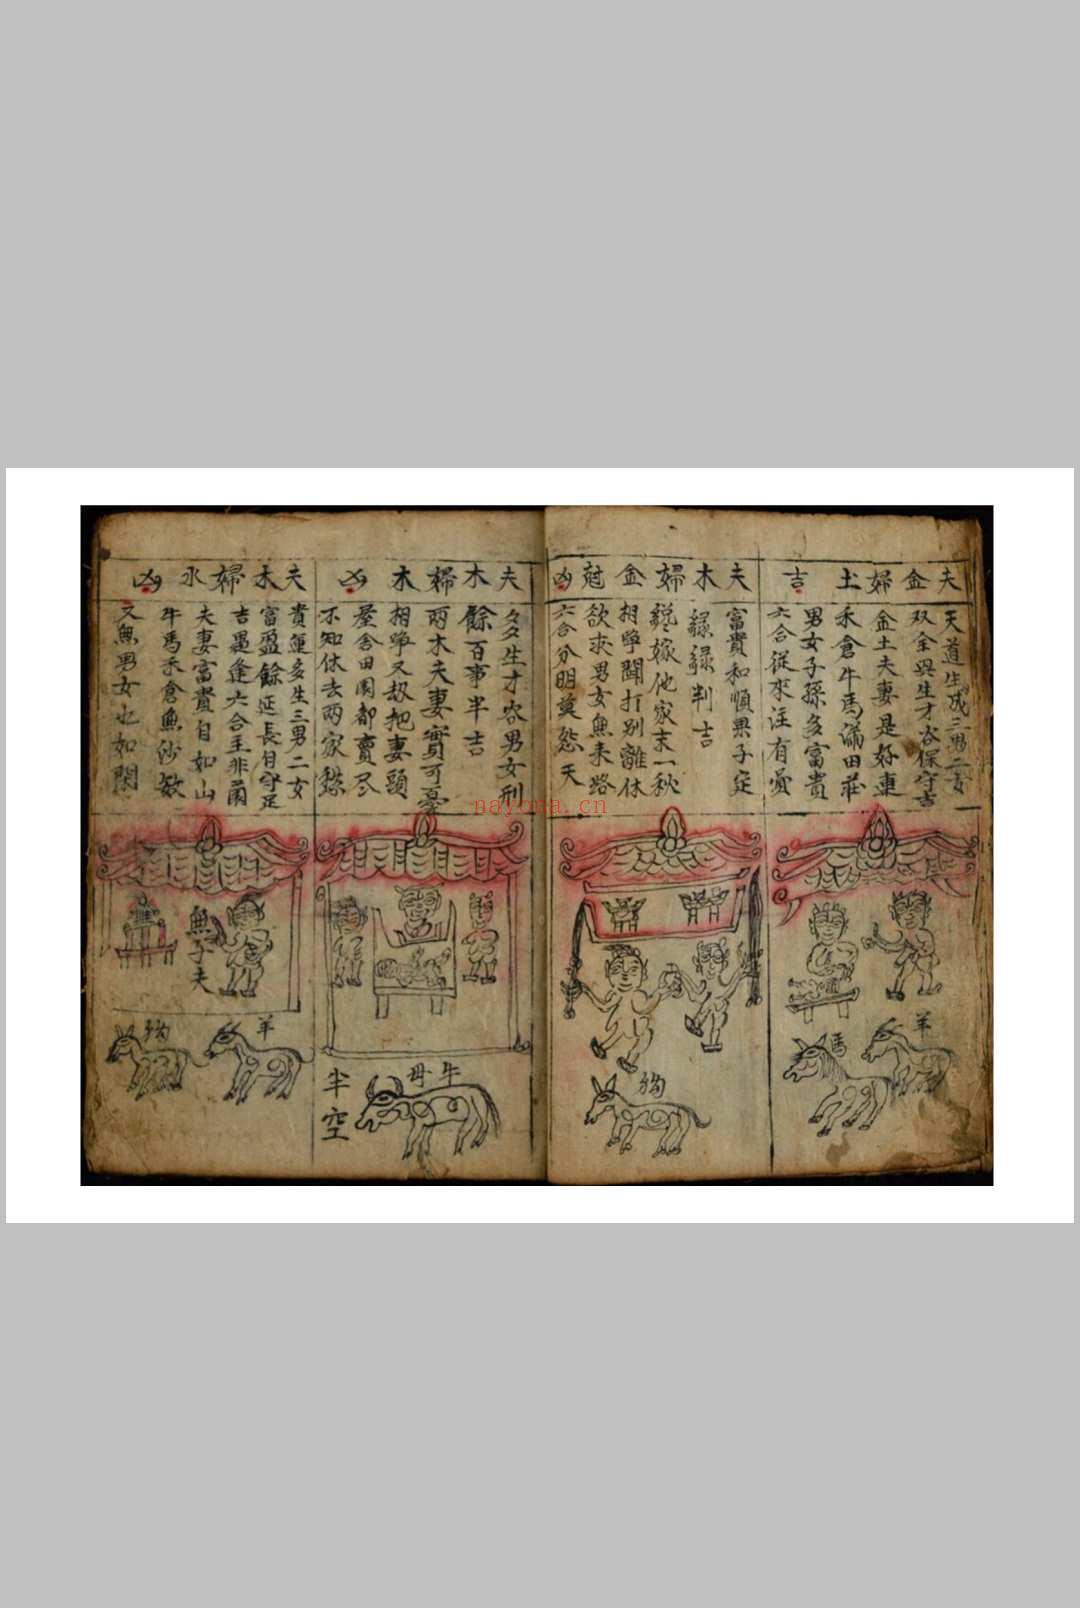 夫金婦土 吉
天道生成三男二女
双全興生才衣保守吉
金土夫妻是好連
禾倉牛馬滿田莊
男女子孫多富貴
六合従來注有
羊
馬
夫木婦金尅凶
富貴和順果子定
録録判吉
嫁他家末一秋
相爭鬧打别離休
欲求男女無来路
六合分明莫怨天
狗
夫木婦木 凶
多生才容男女刑
餘百事半吉
兩木夫妻實可憂
相爭又刼把妻頭
屋舍田園都賣尽
不知休去两家愁
牛母
半空
夫木婦水 凶
貴運多生三男二女
富盈餘延長自守足
吉遇逢六合主非
夫妻富貴自如山
牛馬禾倉無沙数
又無男女也如閑
無子夫
羊
狗
nayona.cn